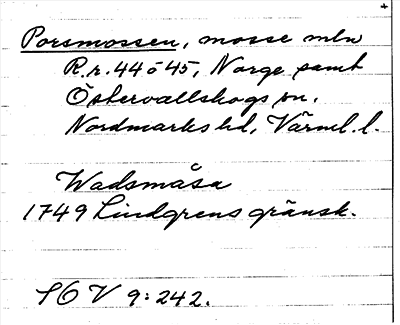 Porsmossen, mosse mln
R.r. 44 o 45, Norge samt
Östervallskogs sn,
Nordmarks hd, Värml. l.
Wadsmåsa
1749 Lindgrens gränsk.
SOV 9:242.